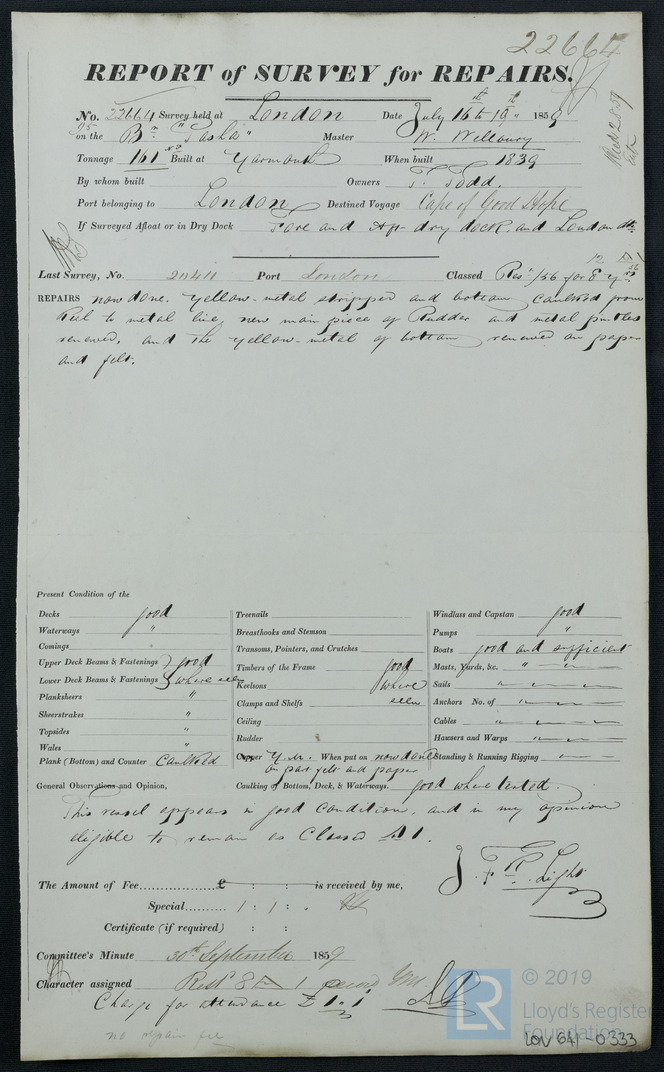 22664
REPORT of SURVEY for REPAIRS.
No. 22664 Survey held at London Date July 16th 19th 1859
on the Bn "Pasha" Master W. Wellbury
Tonnage 161 Built at Yarmouth When built 1839
By whom built Owners T. Todd.
Port belonging to London Destined Voyage Cape of Good Hope
If Surveyed Afloat or in Dry Dock Fore and Aft dry dock and London
Last Survey, No. 20411 Port London Classed Resd /56 for 8 Yrs
REPAIRS now done. Yellow-metal stripped and bottom caulked from
keel to metal line, new main piece of Rudder and metal pintles
renewed, and the yellow-metal of bottom renewed on paper
and felt.
Present Condition of the
Decks good
Waterways "
Comings "
Upper Deck Beams & Fastenings } good
Lower Deck Beams & Fastenings } where seen
Planksheers "
Sheerstrakes "
Topsides "
Wales "
Plank (Bottom) and Counter Caulked
Treenails
Breasthooks and Stemson
Transoms, Pointers, and Crutches
Timbers of the Frame good
Keelsons where
Clamps and Shelfs seen
Ceiling
Rudder
Copper Y.M. When put on now done
on part felt and paper
Caulking of Bottom, Deck, & Waterways. good where tested.
Windlass and Capstan good
Pumps "
Boats good and sufficient
Masts, Yards, &c. " —
Sails " —
Anchors No. of " —
Cables " —
Hawsers and Warps " —
Standing & Running Rigging " —
General Observations and Opinion,
This vessel appears in good condition, and in my opinion
eligible to remain as Classed A1.
The Amount of Fee............... £ : : is received by me,
Special......... 1 : 1 :
Certificate (if required) : :
Committee's Minute 30th September 1859
Character assigned Resd 8 A 1 record YM
Charge for attendance £ 1.1
no repair fee
LR
© 2019
Lloyd's Register
Foundation
LOV 641-0333